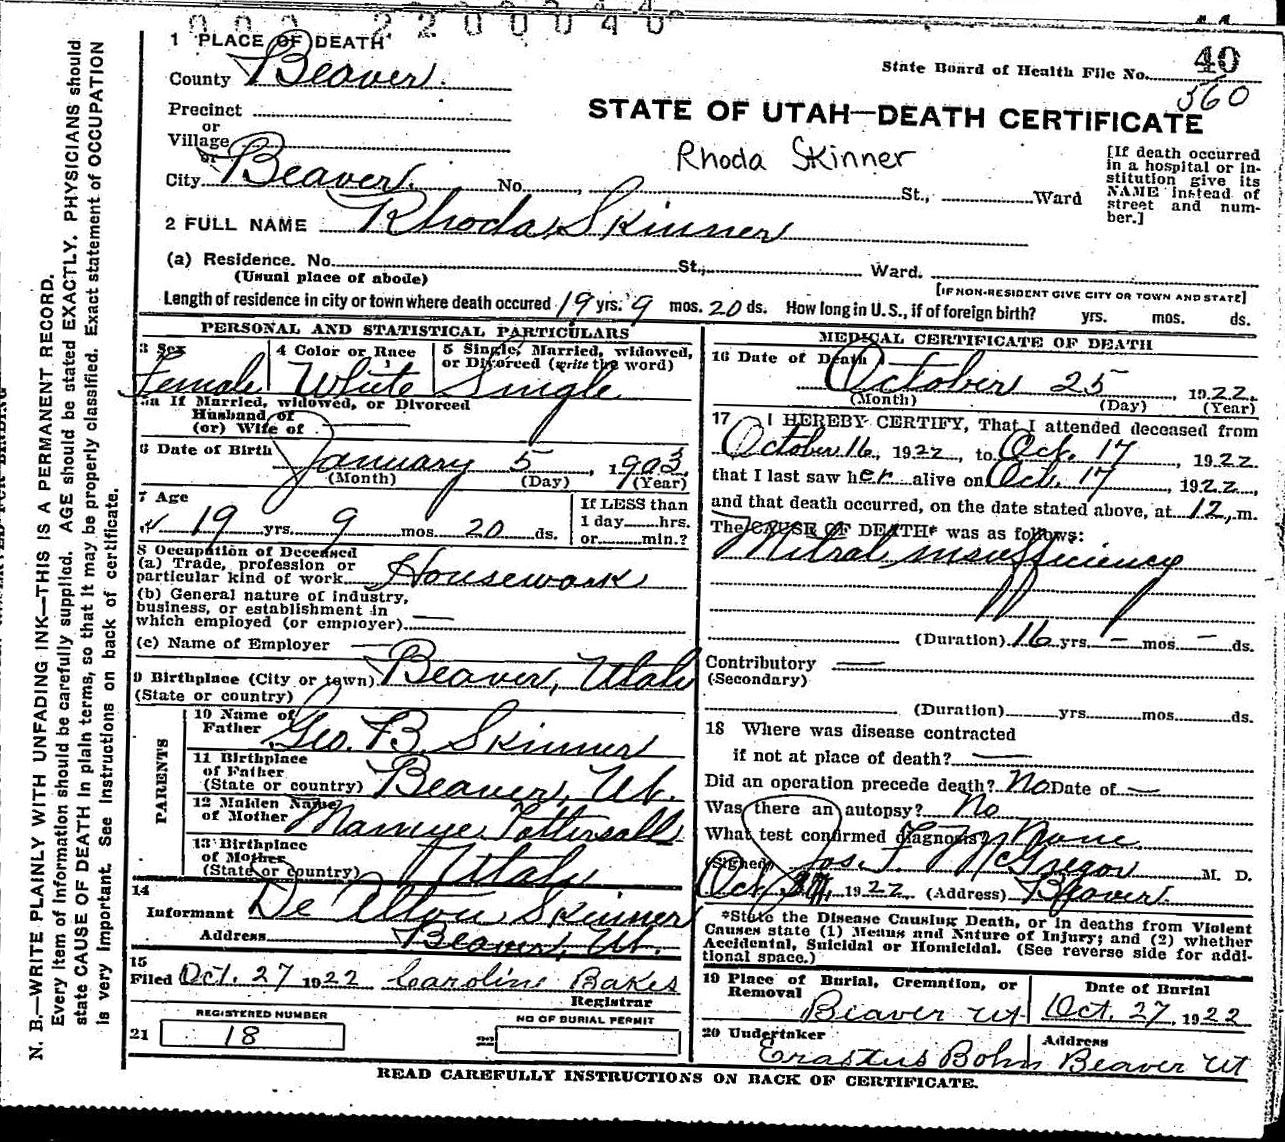 000 2200040
1 PLACE OF DEATH
County Beaver.
State Board of Health File No. 40
560
Precinct
or
Village
or
City Beaver. No. , St., Ward
STATE OF UTAH—DEATH CERTIFICATE
Rhoda Skinner
[If death occurred
in a hospital or in-
stitution give its
NAME instead of
street and num-
ber.]
2 FULL NAME Rhoda Skinner
(a) Residence. No. St., Ward.
(Usual place of abode)
[IF NON-RESIDENT GIVE CITY OR TOWN AND STATE]
Length of residence in city or town where death occurred 19 yrs. 9 mos. 20 ds. How long in U.S., if of foreign birth? yrs. mos. ds.
PERSONAL AND STATISTICAL PARTICULARS
3 Sex 4 Color or Race 5 Single, Married, widowed,
or Divorced (write the word)
Female White Single
5a If Married, widowed, or Divorced
Husband of
(or) Wife of —
6 Date of Birth January 5, 1903
(Month) (Day) (Year)
7 Age If LESS than
1 day hrs.
or min.?
19 yrs. 9 mos. 20 ds.
8 Occupation of Deceased
(a) Trade, profession or
particular kind of work Housework
(b) General nature of industry,
business, or establishment in
which employed (or employer) —
(c) Name of Employer —
9 Birthplace (City or town) Beaver, Utah
(State or country)
PARENTS
10 Name of
Father Geo. B. Skinner
11 Birthplace
of Father
(State or country) Beaver, Ut.
12 Maiden Name
of Mother
13 Birthplace
of Mother
(State or country) Utah
14
Informant De Alton Skinner
Address Beaver, Ut.
15
Filed Oct. 27 1922 Caroline Bakes
Registrar
REGISTERED NUMBER
21 18
NO OF BURIAL PERMIT
22
MEDICAL CERTIFICATE OF DEATH
16 Date of Death
October 25, 1922.
(Month) (Day) (Year)
17 I HEREBY CERTIFY, That I attended deceased from
October 16, 1922, to Oct. 17, 1922.
that I last saw her alive on Oct. 17, 1922.,
and that death occurred, on the date stated above, at 12, m.
The CAUSE OF DEATH* was as follows:
Mitral insufficiency
(Duration) 16 yrs. — mos. — ds.
Contributory —
(Secondary)
(Duration) yrs. mos. ds.
18 Where was disease contracted
if not at place of death? —
Did an operation precede death? No Date of —
Was there an autopsy? No
What test confirmed diagnosis? None
(Signed) Jos. F. McGregor M. D.
Oct 1922 (Address) Beaver.
*State the Disease Causing Death, or in deaths from Violent
Causes state (1) Means and Nature of Injury; and (2) whether
Accidental, Suicidal or Homicidal. (See reverse side for addi-
tional space.)
19 Place of Burial, Cremation, or
Removal
Beaver Ut
Date of Burial
Oct. 27, 1922
20 Undertaker Address
Erastus Bohn Beaver Ut
READ CAREFULLY INSTRUCTIONS ON BACK OF CERTIFICATE.
N. B.—WRITE PLAINLY WITH UNFADING INK—THIS IS A PERMANENT RECORD.
Every item of information should be carefully supplied. AGE should be stated EXACTLY. PHYSICIANS should
state CAUSE OF DEATH in plain terms, so that it may be properly classified. Exact statement of OCCUPATION
is very important. See Instructions on back of certificate.